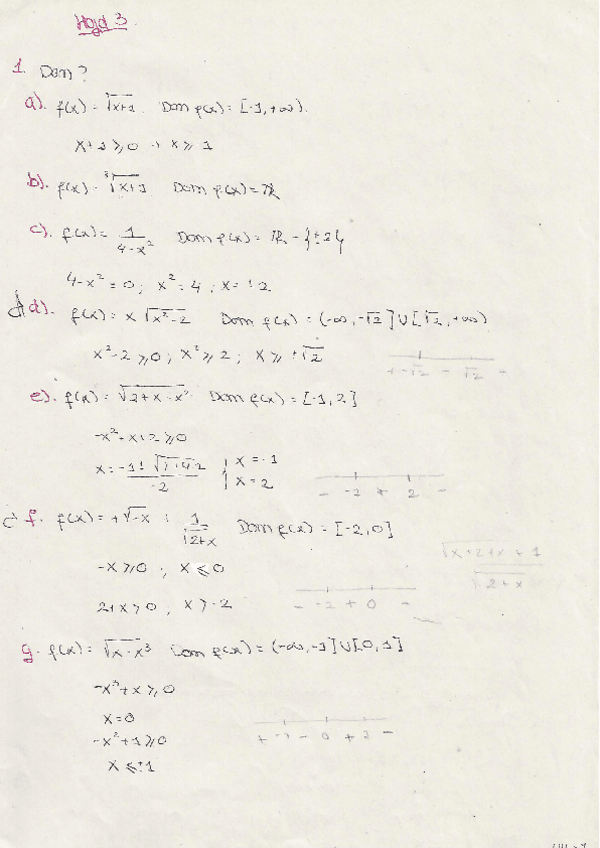 Hoja 3
1. Dom?
a). f(x) = √x+1. Dom f(x) = [-1, +∞).
x+1 ≥ 0 → x ≥ 1
b). f(x) = ³√x+1 Dom f(x) = R
c). f(x) = 1/(4-x²) Dom f(x) = R - {±2}
4-x² = 0; x² = 4; x = ±2
d). f(x) = x √x²-2 Dom f(x) = (-∞, -√2] U [√2, +∞)
x²-2 ≥ 0; x² ≥ 2; x ≥ ±√2
+ -√2 - √2 -
e). f(x) = √2+x-x² Dom f(x) = [-1, 2]
-x²+x+2 ≥ 0
x = -1± √1+4·2 / -2 x = -1
x = 2
- -2 + 2 -
f. f(x) = +√-x + 1/√2+x Dom f(x) = [-2, 0]
-x ≥ 0; x ≤ 0
2+x > 0; x > -2
- -2 + 0 -
g. f(x) = √x-x³ Dom f(x) = (-∞, -1] U [0, 1]
-x³+x ≥ 0
x = 0
-x²+1 ≥ 0
x ≤ ±1